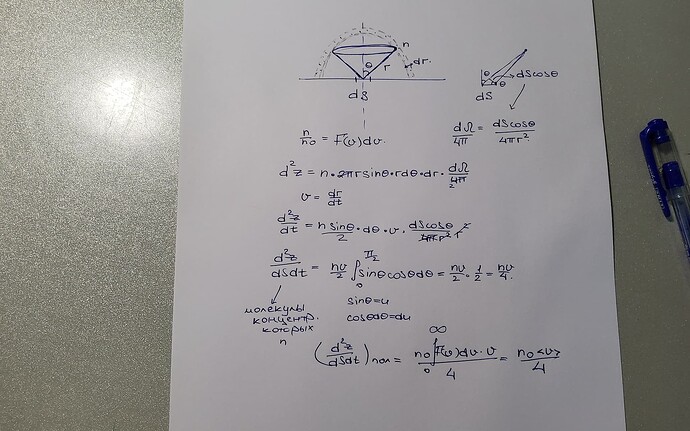 n
θ
r
dr
dS
θ
θ
dS
dScosθ
n/n₀ = F(v)dv.
dΩ/4π = dScosθ/4πr²
d²z = n·2πrsinθ·rdθ·dr·dΩ/4π
v = dr/dt
d²z/dt = n sinθ/2 · dθ · v · dScosθ/4πr² r²
d²z/dSdt = nv/2 ∫₀^(π/2) sinθcosθdθ = nv/2 · 1/2 = nv/4.
молекулы
концентр.
которых
n
sinθ=u
cosθdθ=du
(d²z/dSdt)пол = n₀∫₀^∞ F(v)dv·v/4 = n₀<v>/4